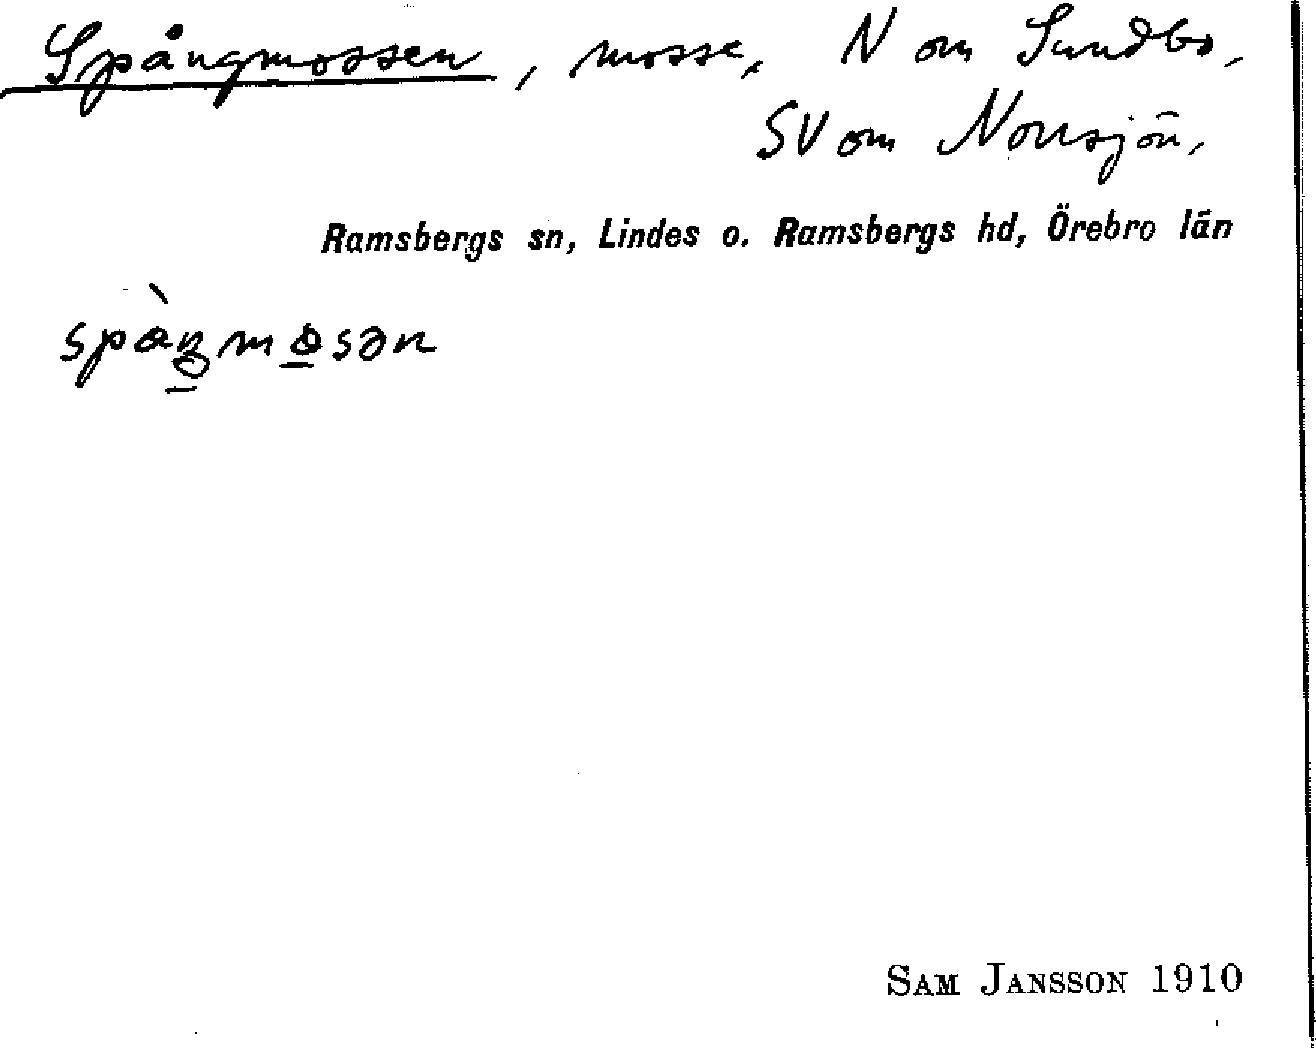 Spångmossen, mosse, N om Sundbo,
SV om Norrsjön,
Ramsbergs sn, Lindes o. Ramsbergs hd, Örebro län
SAM JANSSON 1910